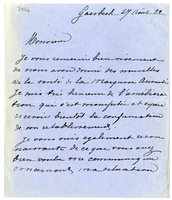 Gaesbeek 27 Août 82
Monsieur
Je vous remercie bien vivement
de nous avoir donné des nouvelles
de la santé de la Marquise Arconati
Je suis très heureuse de l'améliora
tion qui s'est manifestée et espère
recevoir bientôt la confirmation
de son rétablissement.
Je vous suis également recon
naissante de ce que vous avez
bien voulu me communiquer
concernant ma situation